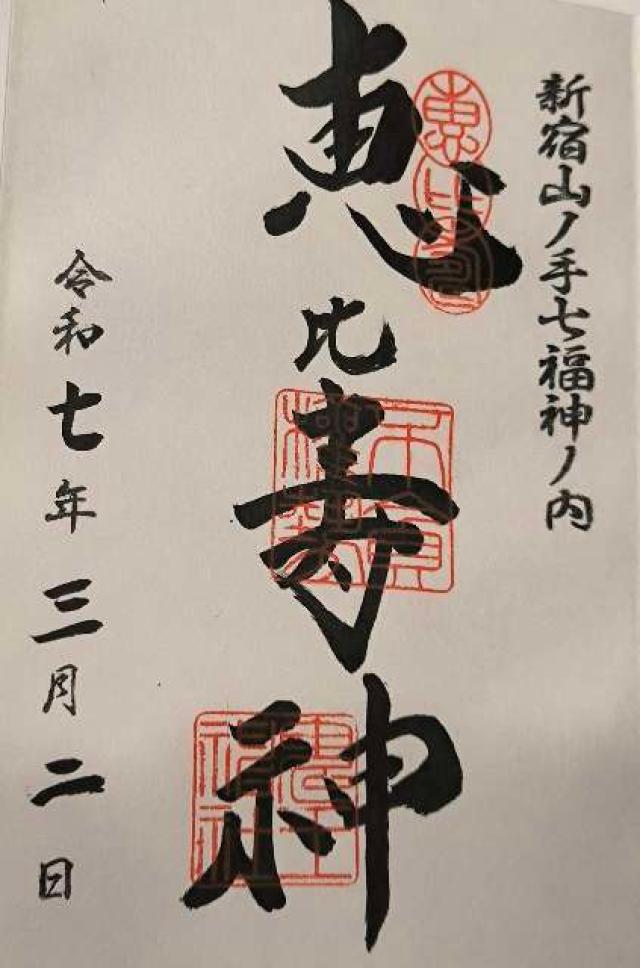 新宿山ノ手七福神ノ内
恵比寿神
恵比寿
令和七年三月二日